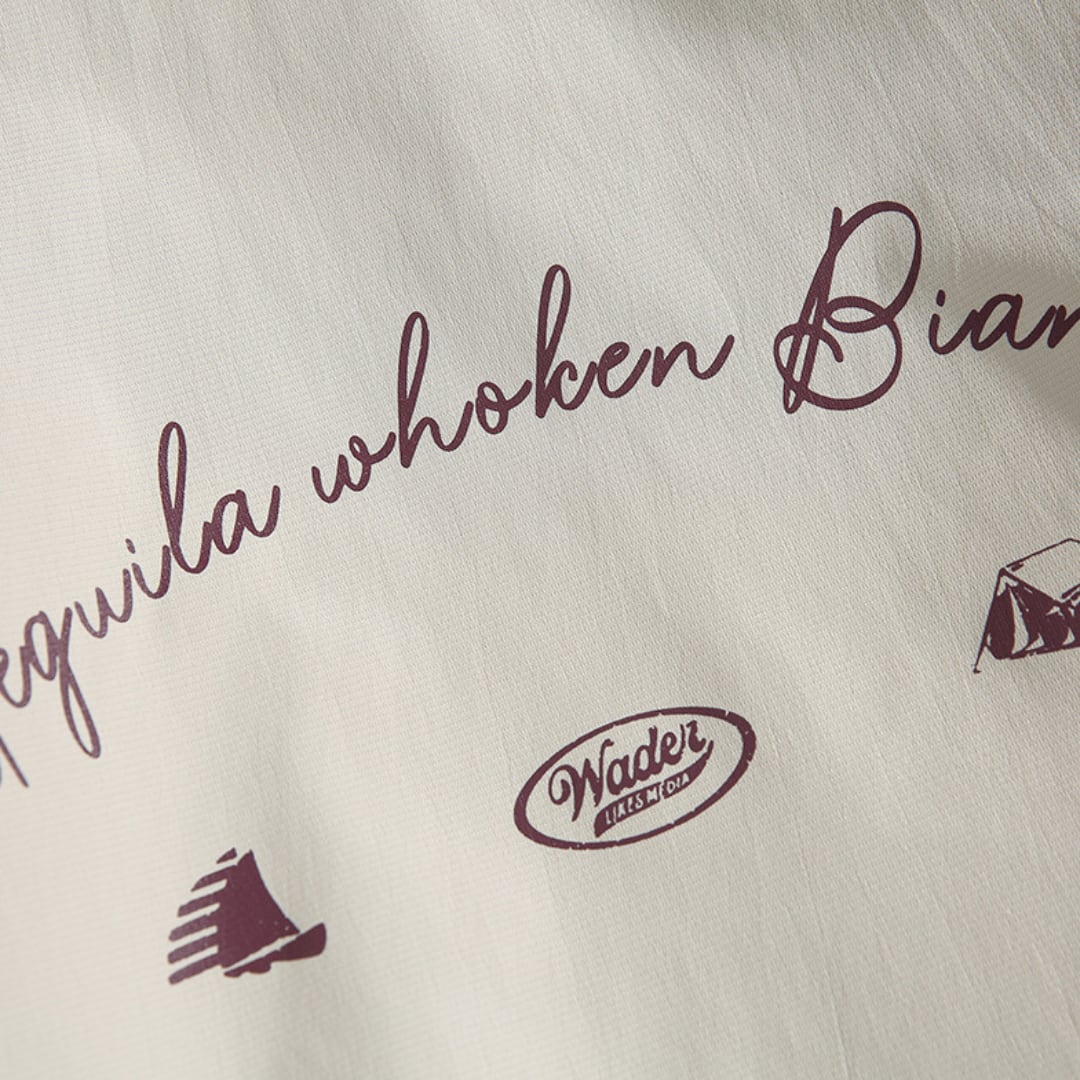 equila whoken Bian
Wader
LIKES MEDIA